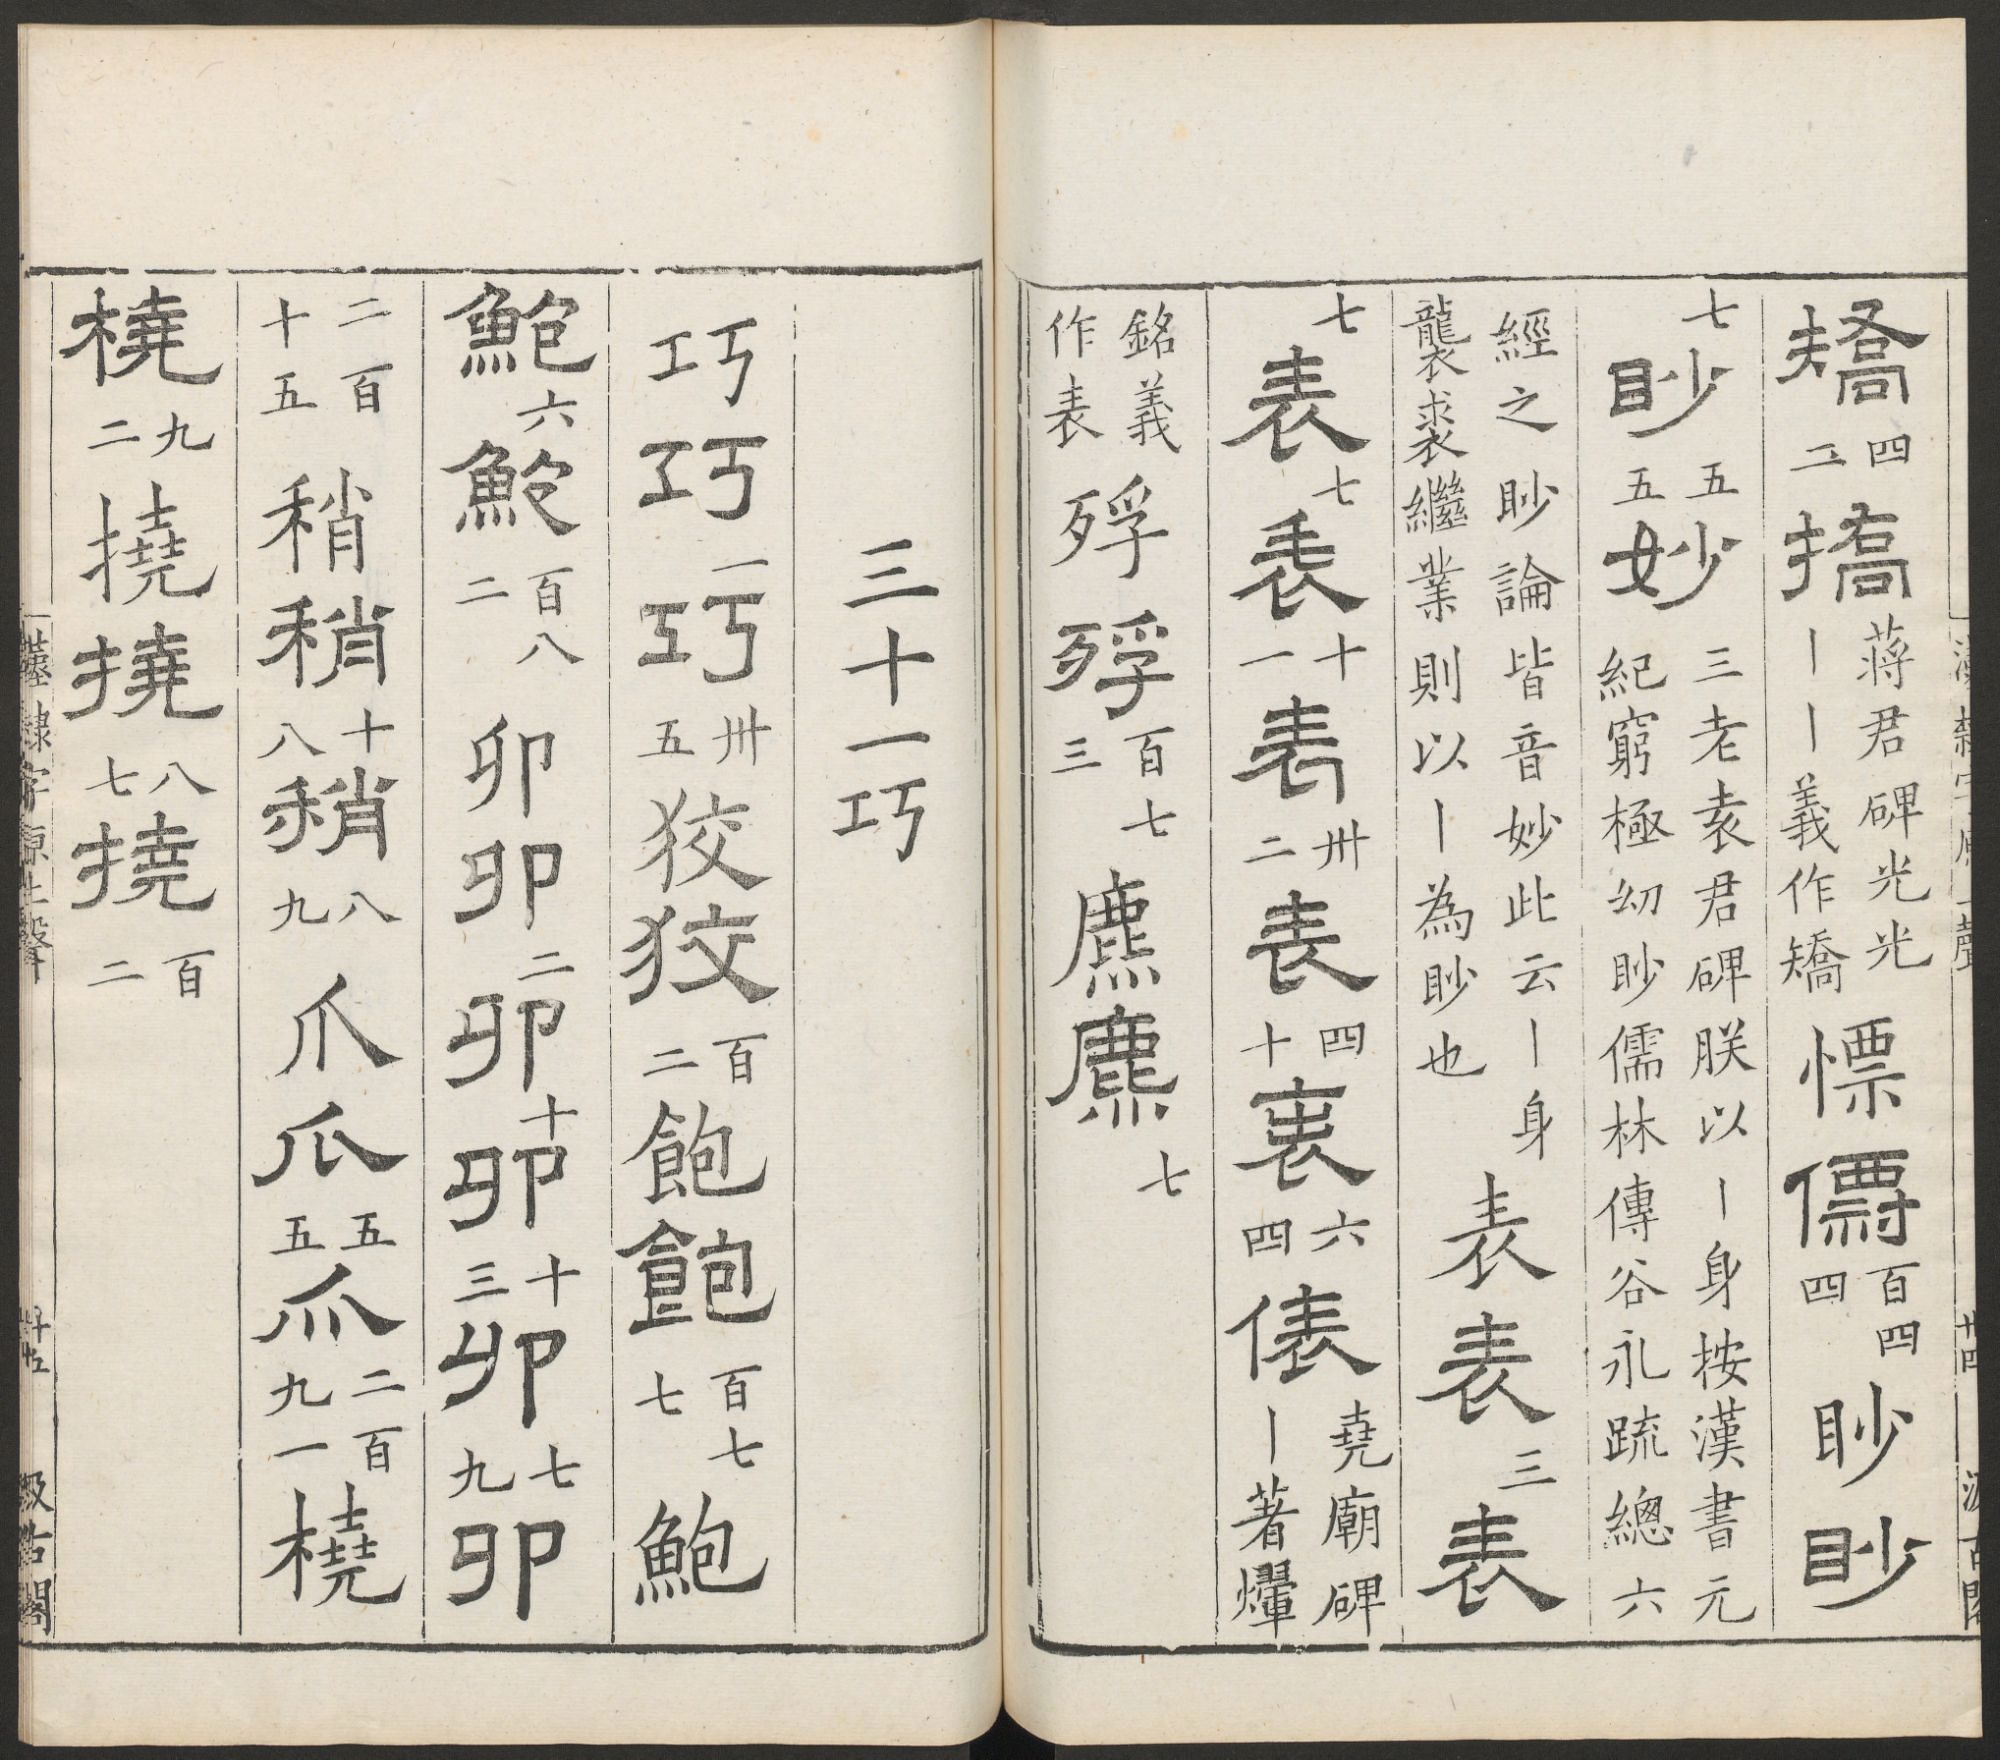 矯四二撟蔣君碑光光丨丨義作矯慓㒓百四四眇眇
七眇五五妙三老袁君碑朕以丨身按漢書元紀窮極幼眇儒林傳谷永疏總六
經之眇論皆音妙此云丨身襲裘繼業則以丨為眇也表表三表
七表七表十一表卅二表四十裏六四俵堯廟碑丨著燿
銘義作表殍殍百七三麃麃七
三十一巧
巧巧一巧卅五狡狡百二飽飽百七七鮑
鮑六鮑百八二卯卯二卯十卯十三卯七九卯
二百十五稍稍十八稍八九爪爪五五爪二百九一橈
橈九二撓撓八七撓百二
漢隸字原上聲
廿四
汲古閣
漢隸字原上聲
汲古閣